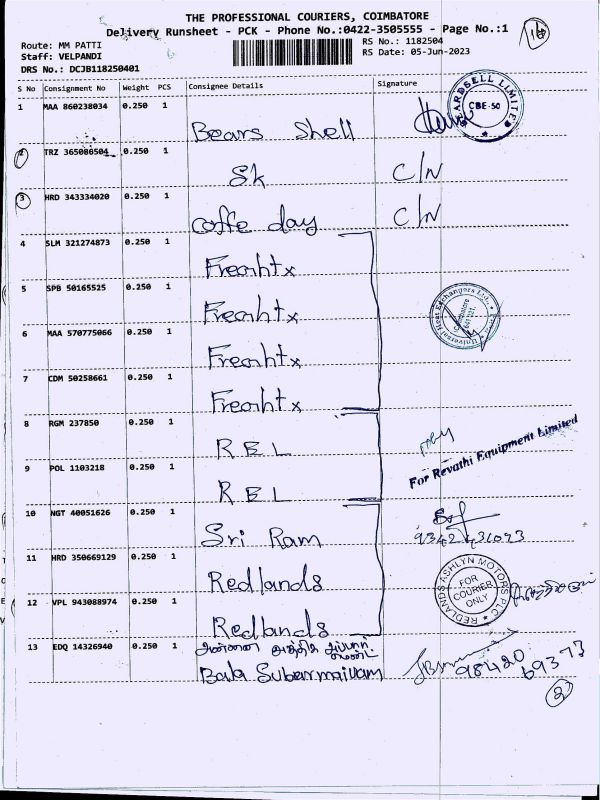 THE PROFESSIONAL COURIERS, COIMBATORE
Delivery Runsheet - PCK - Phone No.:0422-3505555 - Page No.:1
Route: MM PATTI
RS No.: 1182504
Staff: VELPANDI
RS Date: 05-Jun-2023
DRS No.: DCJB118250401
S No Consignment No Weight PCS Consignee Details Signature
1 MAA 860238034 0.250 1 Bears Shell
BEARDSELL LIMITED CBE-50
2 TRZ 365086504 0.250 1 Sk C/N
3 HRD 343334020 0.250 1 Coffe day C/N
4 SLM 321274873 0.250 1 Freohtx
5 SPB 50165525 0.250 1 Freohtx
Universal Heat Exchangers Ltd. Coimbatore
6 MAA 570775066 0.250 1 Freohtx
7 CDM 50258661 0.250 1 Freohtx
8 RGM 237850 0.250 1 REL
For Revathi Equipment Limited
9 POL 1103218 0.250 1 REL
10 NGT 40051626 0.250 1 Sri Ram
11 HRD 350669129 0.250 1 Redlands
REDLANDS ASHLYN MOTORS PLC FOR COURIER ONLY
12 VPL 943088974 0.250 1 Redlands
13 EDQ 14326940 0.250 1
Bala Subarmaivam
98420 69373
2